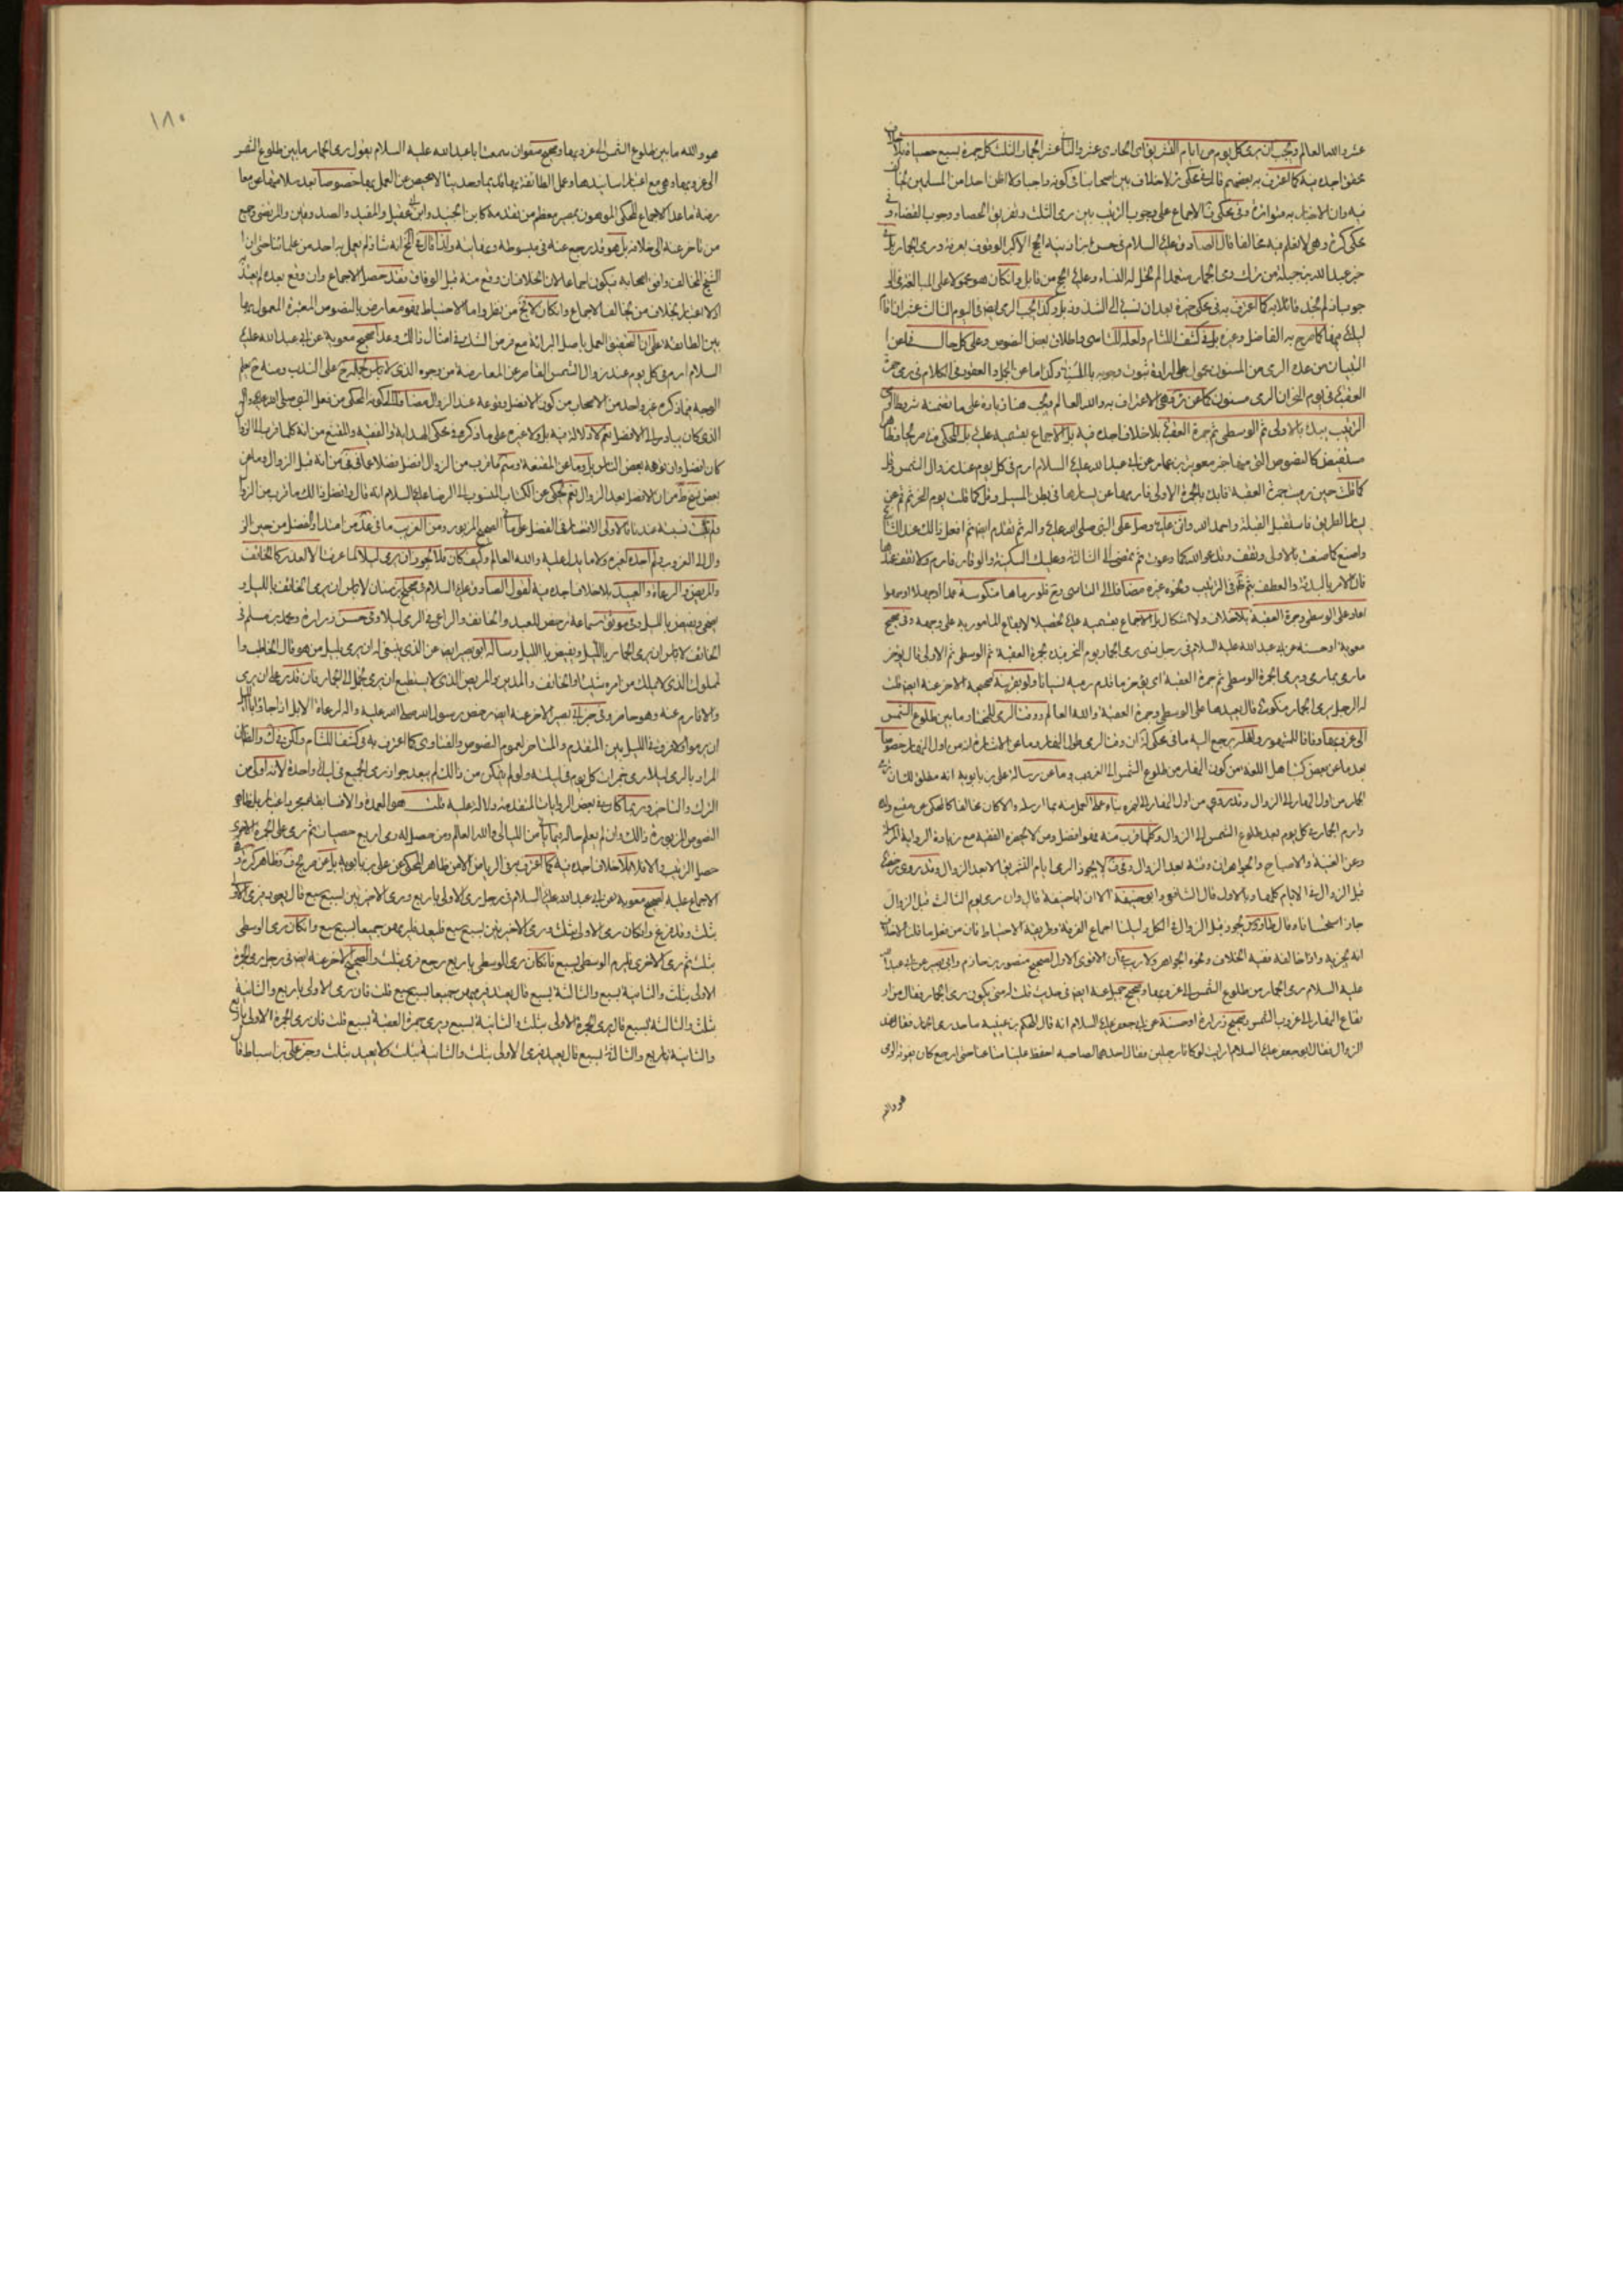 عشر والله العالم ويجب ان يرمى كل يوم من ايام التشريق اى الحادى عشر والثانى عشر الجمار الثلث كل جمرة بسبع حصيات بلا خلاف
محقق اجده فيه كما اعترف به بعضهم قال فى محكى لا خلاف بين اصحابنا فى كونه واجبا ولا اظن احدا من المسلمين يخالف
فيه وان الاخبار به متواترة وفى محكى الاجماع على وجوب الترتيب بين رمى الثلث وتفريق الحصا ووجوب القضاء وفى
محكى كره وهى لا نعلم فيه مخالفا قال الصادق عليه السلام فى حسن ابن اذينة الحج الاكبر الوقوف بعرفة ورمى الجمار بل فى
خبر عبد الله بن جبلة من ترك رمى الجمار متعمدا لم تحل له النساء وعليه الحج من قابل وان كان هو محمولا على المبالغة
اذ لم نجد قائلا به كما اعترف به فى محكى بعد ان نسبه الى الشذوذ بل وكذا يجب الرمى ايضا فى اليوم الثالث عشر ان اقام
ليلته فيها كما صرح به الفاضل وغيره بل فى كشف اللثام ولعله للتاسى واطلاق بعض النصوص وعلى كل حال فما عن
التبيان من عد الرمى من المسنون محمول على ارادة ثبوت وجوبه بالسنة وكذا ما عن الجمل والعقود فى الكلام فى رمى جمرة
العقبة فى يوم النحر ان الرمى مسنون كما عن الاعتراف به والله العالم ويجب هنا زيادة على ما تضمنه شروط الرمى
الترتيب يبدء بالاولى ثم الوسطى ثم جمرة العقبة بلا خلاف اجده فيه بل الاجماع بقسميه عليه بل المحكى منه صريحا وظاهرا
مستفيض كالنصوص التى منها خبر معوية بن عمار عن ابى عبد الله عليه السلام ارم فى كل يوم عند زوال الشمس وقل
كما قلت حين رميت جمرة العقبة فابدء بالجمرة الاولى فارمها عن يسارها فى بطن المسيل وقل كما قلت يوم النحر ثم قم عن
يسار الطريق فاستقبل القبلة واحمد الله واثن عليه وصل على النبى صلى الله عليه واله ثم تقدم ايضا ثم افعل ذلك عند الثانية
واصنع كما صنعت بالاولى وتقف وتدعو الله كما دعوت ثم تمضى الى الثالثة وعليك السكينة والوقار فارم ولا تقف عندها
فان الامر بالبدئة والعطف بثم ظ فى الترتيب ونحوه غيره مضافا الى التاسى وح فلو رماها منكوسة عمدا او جهلا او سهوا
اعاد على الوسطى وجمرة العقبة بلا خلاف ولا اشكال بل الاجماع بقسميه عليه تحصيلا لايقاع المامور به على وجهه وفى صحيح
معوية او حسنه عن ابى عبد الله عليه السلام فى رجل نسى رمى الجمار يوم النحر فبدء بجمرة العقبة ثم الوسطى ثم الاولى قال يؤخر
ما رمى بما رمى ويرمى الجمرة الوسطى ثم جمرة العقبة اى يؤخر ما قدم رميه نسيانا ولو بقرينة صحيحه الاخر عنه ايضا قلت
له الرجل يرمى الجمار منكوسة قال يعيدها على الوسطى وجمرة العقبة والله العالم ووقت الرمى للمختار ما بين طلوع الشمس
الى غروبها وفاقا للمشهور ولعله يرجع اليه ما فى محكى ان وقت الرمى طول النهار وما عن الاشارة انه من اول النهار خصوصا
بعد ما عن بعض كتب اهل اللغة من كون النهار من طلوع الشمس الى الغروب وما عن رسالة على بن بابويه انه مطلق لك ان ترمى
الجمار من اول النهار الى الزوال وقد روى من اول النهار الى اخره بناء على العمل منه بما ارسله والا كان مخالفا كالمحكى عن مقنع ولده
وارم الجمار فى كل يوم بعد طلوع الشمس الى الزوال وكلما قرب منه فهو افضل ومن لا يحضره الفقيه مع زيادة الرواية المذكورة
وعن الغنية والاصباح والجواهر ان وقته بعد الزوال وفى لا يجوز الرمى ايام التشريق الا بعد الزوال وقد روى رخصة
قبل الزوال فى الايام كلها وبالاول قال الشافعى وابو حنيفة الا ان ابا حنيفة قال وان رمى يوم الثالث قبل الزوال
جاز استحسانا وقال طاوس يجوز قبل الزوال فى الكل دليلنا اجماع الفرقة وطريقة الاحتياط فان من فعل ما قلناه لا خلاف
انه يجزيه واذا خالفه ففيه الخلاف ونحوه الجواهر ولا ريب فى ان الاقوى الاول لصحيح منصور بن حازم وابى بصير عن ابى عبد الله
عليه السلام رمى الجمار من طلوع الشمس الى غروبها وصحيح جميل عنه ايضا فى حديث قلت له متى يكون رمى الجمار فقال من ار
تفاع النهار الى غروب الشمس وصحيح زرارة او حسنه عن ابى جعفر عليه السلام انه قال للحكم بن عتيبة ما حد رمى الجمار فقال عند
الزوال فقال ابو جعفر عليه السلام ارايت لو كانا رجلين فقال احدهما لصاحبه احفظ علينا متاعنا حتى ارجع كان يفوته الرمى
هو والله
١٨٠
هو والله ما بين طلوع الشمس الى غروبها وصحيح صفوان سمعت ابا عبد الله عليه السلام يقول رمى الجمار ما بين طلوع الشمس
الى غروبها وهى مع اعتبار اسانيدها وعمل الطائفة بها قديما وحديثا لا محيص عن العمل بها خصوصا بعد سلامتها عن معا
رضة ما عدا الاجماع المحكى الموهون بمصير معظم من تقدمه كابن الجنيد وابن ابى عقيل والمفيد والصدوقين والمرتضى وجميع
من تاخر عنه الى خلافه بل هو قد رجع عنه فى مبسوطه ونهايته ولذا قال فى انه شاذ لم يعمل به احد من علمائنا حتى ان
الشيخ المخالف وافق اصحابه فيكون اجماعا لان الخلاف ان وقع منه قبل الوفاق فقد حصل الاجماع وان وقع بعده لم يعتد
اذ لا اعتبار بخلاف من يخالف الاجماع وان كان لا يخ من نظر واما الاحتياط فهو معارض بالنصوص المعتبرة المعمول بها
بين الطائفة على ان التحقيق العمل باصل البرائة مع فرض الشك فى امثال ذلك وعدا صحيح معوية عن ابى عبد الله عليه
السلام ارم فى كل يوم عند زوال الشمس القاصر عن المعارضة من وجوه الذى لا باس بحمله على الندب ومنه ح يعلم
الوجه فيما ذكره غير واحد من الاصحاب من كون الافضل وقوعه عند الزوال مضافا الى كونه المحكى من فعل النبى صلى الله عليه واله
الذى كان يبادر الى الافضل نعم لا دلالة فيه بل ولا غيره على ما ذكره فى محكى الهداية والفقيه والمقنع من انه كلما قرب الى الزوال
كان افضل وان توهمه بعض الناس بل وما عن المقنعة وسم ما قرب من الزوال افضل فضلا عما فى من انه قبل الزوال وما عن
بعض نسخ من ان الافضل بعد الزوال نعم حكى عن الكتاب المنسوب الى الرضا عليه السلام انه قال وافضل ذلك ما قرب من الزوال
ولم تثبت نسبته عندنا فالاولى الاقتصار فى الفضل على ما فى الصحيح المزبور ومن الغريب ما فى عد من امتداد الفضل من حين الز
وال الى الغروب ولم اجده لغيره ولا ما يدل عليه والله العالم وكيف كان فلا يجوز ان يرمى ليلا لما عرفت الا لعذر كالخائف
والمريض والرعاة والعبيد بلا خلاف اجده فيه لقول الصادق عليه السلام فى صحيح ابن سنان لا باس ان يرمى الخائف بالليل و
يضحى ويفيض بالليل وفى موثق سماعة رخص للعبد والخائف والراعى فى الرمى ليلا وفى حسن زرارة ومحمد بن مسلم فى
الخائف لا باس ان يرمى الجمار بالليل ويفيض بالليل وساله ابو بصير ايضا عن الذى ينبغى له ان يرمى بليل من هو قال الحاطبة وا
لمملوك الذى لا يملك من امره شيئا والخائف والمدين والمريض الذى لا يستطيع ان يرمى يحمل الى الجمار فان قدر على ان يرمى
والا فارم عنه وهو حاضر وفى خبر ابى بصير الاخر عنه ايضا رخص رسول الله صلى الله عليه واله لرعاة الابل اذا جاؤا بالليل
ان يرموا ولا فرق فى الليل بين المتقدم والمتاخر لعموم النصوص والفتاوى كما اعترف به فى كشف اللثام ولكن فى والظاهر ان
المراد بالرمى ليلا رمى جمرات كل يوم فى ليلته ولو لم يتمكن من ذلك لم يبعد جواز رمى الجميع فى ليلة واحدة لانه اولى من
الترك والتاخير وربما كان فى بعض الروايات المتقدمة دلالة عليه قلت هو العمدة والا فالسابقه مجرد اعتبار بل ظاهر
النصوص المزبورة ذلك وان لم يعلم حاله فيما ياتى من الليالى والله العالم ومن حصل له رمى اربع حصيات ثم رمى على الجمرة الاخرى
حصل الترتيب والا فلا بلا خلاف اجده فيه كما اعترف به فى الرياض الا من ظاهر المحكى عن على بن بابويه بل عن صريح وظاهر كره
الاجماع عليه لصحيح معوية عن ابى عبد الله عليه السلام فى رجل رمى الاولى باربع ورمى الاخرتين بسبع سبع قال يعود فيرمى الاولى
بثلث وقد فرغ وان كان رمى الاولى بثلث ورمى الاخيرتين بسبع سبع فليعد فليرمهن جميعا بسبع سبع وان كان رمى الوسطى
بثلث ثم رمى الاخرى فليرم الوسطى بسبع فان كان رمى الوسطى باربع رجع فرمى بثلث والصحيح الاخر عنه ايضا فى رجل رمى الجمرة
الاولى بثلث والثانية بسبع والثالثة بسبع قال يعيد فيرميهن جميعا بسبع سبع قلت فان رمى الاولى باربع والثانية
بثلث والثالثة بسبع قال يرمى الجمرة الاولى بثلث والثانية بسبع ويرمى جمرة العقبة بسبع قلت فان رمى الجمرة الاولى باربع
والثانية باربع والثالثة بسبع قال يعيد فيرمى الاولى بثلث والثانية بثلث ولا يعيد بثلث وخبر على بن اسباط قا